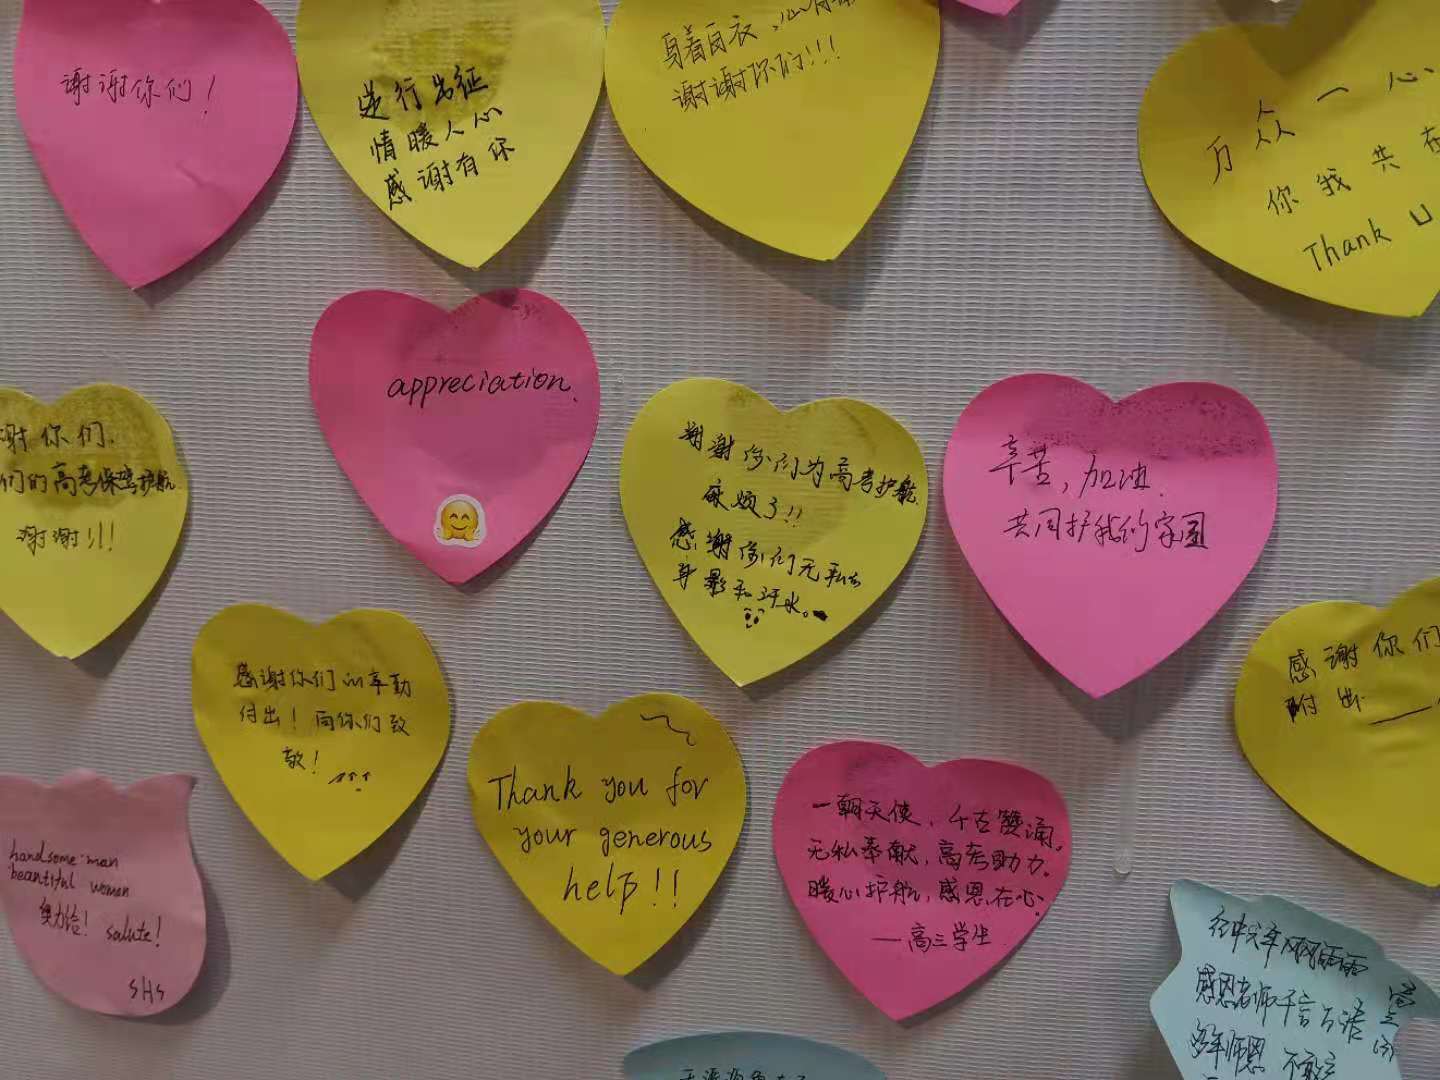 谢谢你们!
逆行出征
情暖人心
感谢有你
身着白衣,心有
谢谢你们!!!
万众一心
你我共在
Thank U
appreciation.
谢你们.
们的高考保驾护航
谢谢!!!
谢谢你们为高考护航
麻烦了!!
感谢你们无私的
身影和汗水。
辛苦,加油.
共同护我们家园
感谢你们
付出——
感谢你们的辛勤
付出!向你们致
敬!
Thank you for
your generous
help!!
一朝天使,千古赞诵,
无私奉献,高考助力.
暖心护航,感恩在心.
——高三学生
handsome man
beautiful women
salute!
SHS
感恩老师千言万语
师恩